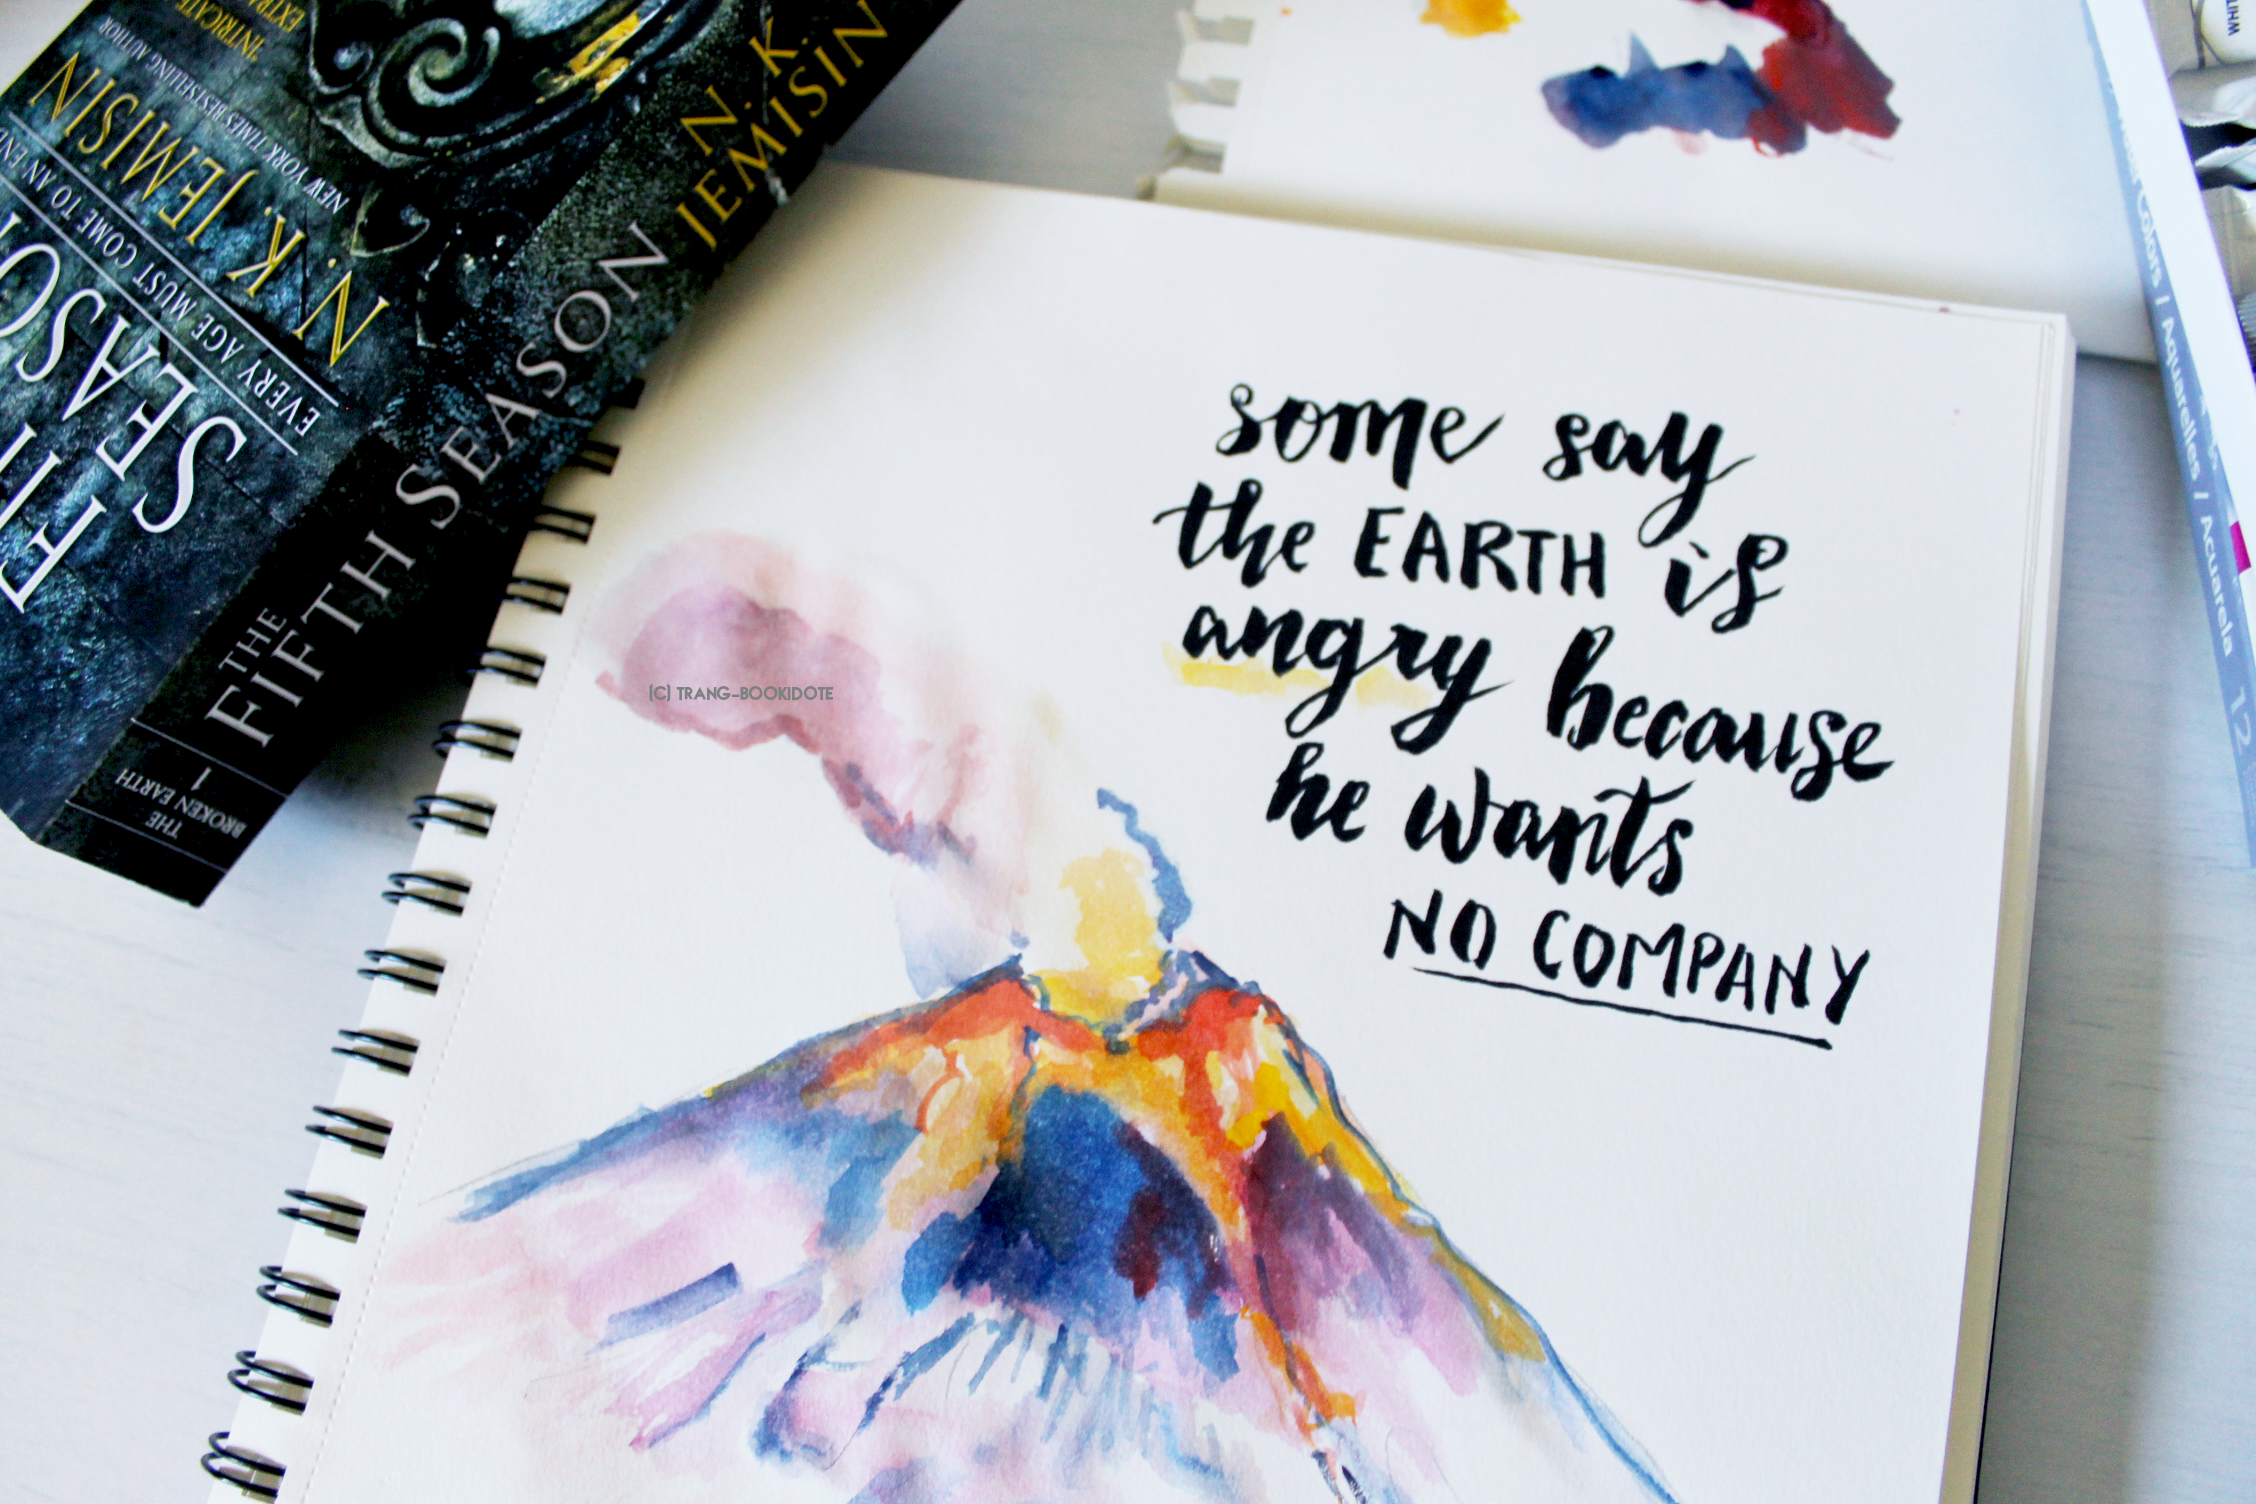 some say
the EARTH is
angry because
he wants
NO COMPANY
(C) TRANG-BOOKIDOTE
N. K.
JEMISIN
THE
FIFTH SEASON
1
THE
BROKEN EARTH
"INTRICATE
NEW YORK TIMES BESTSELLING AUTHOR
N. K. JEMISIN
N. K. JEMISIN
EVERY AGE MUST COME TO AN END
SEASON
Colors / Aquarelles / Acuarela
12